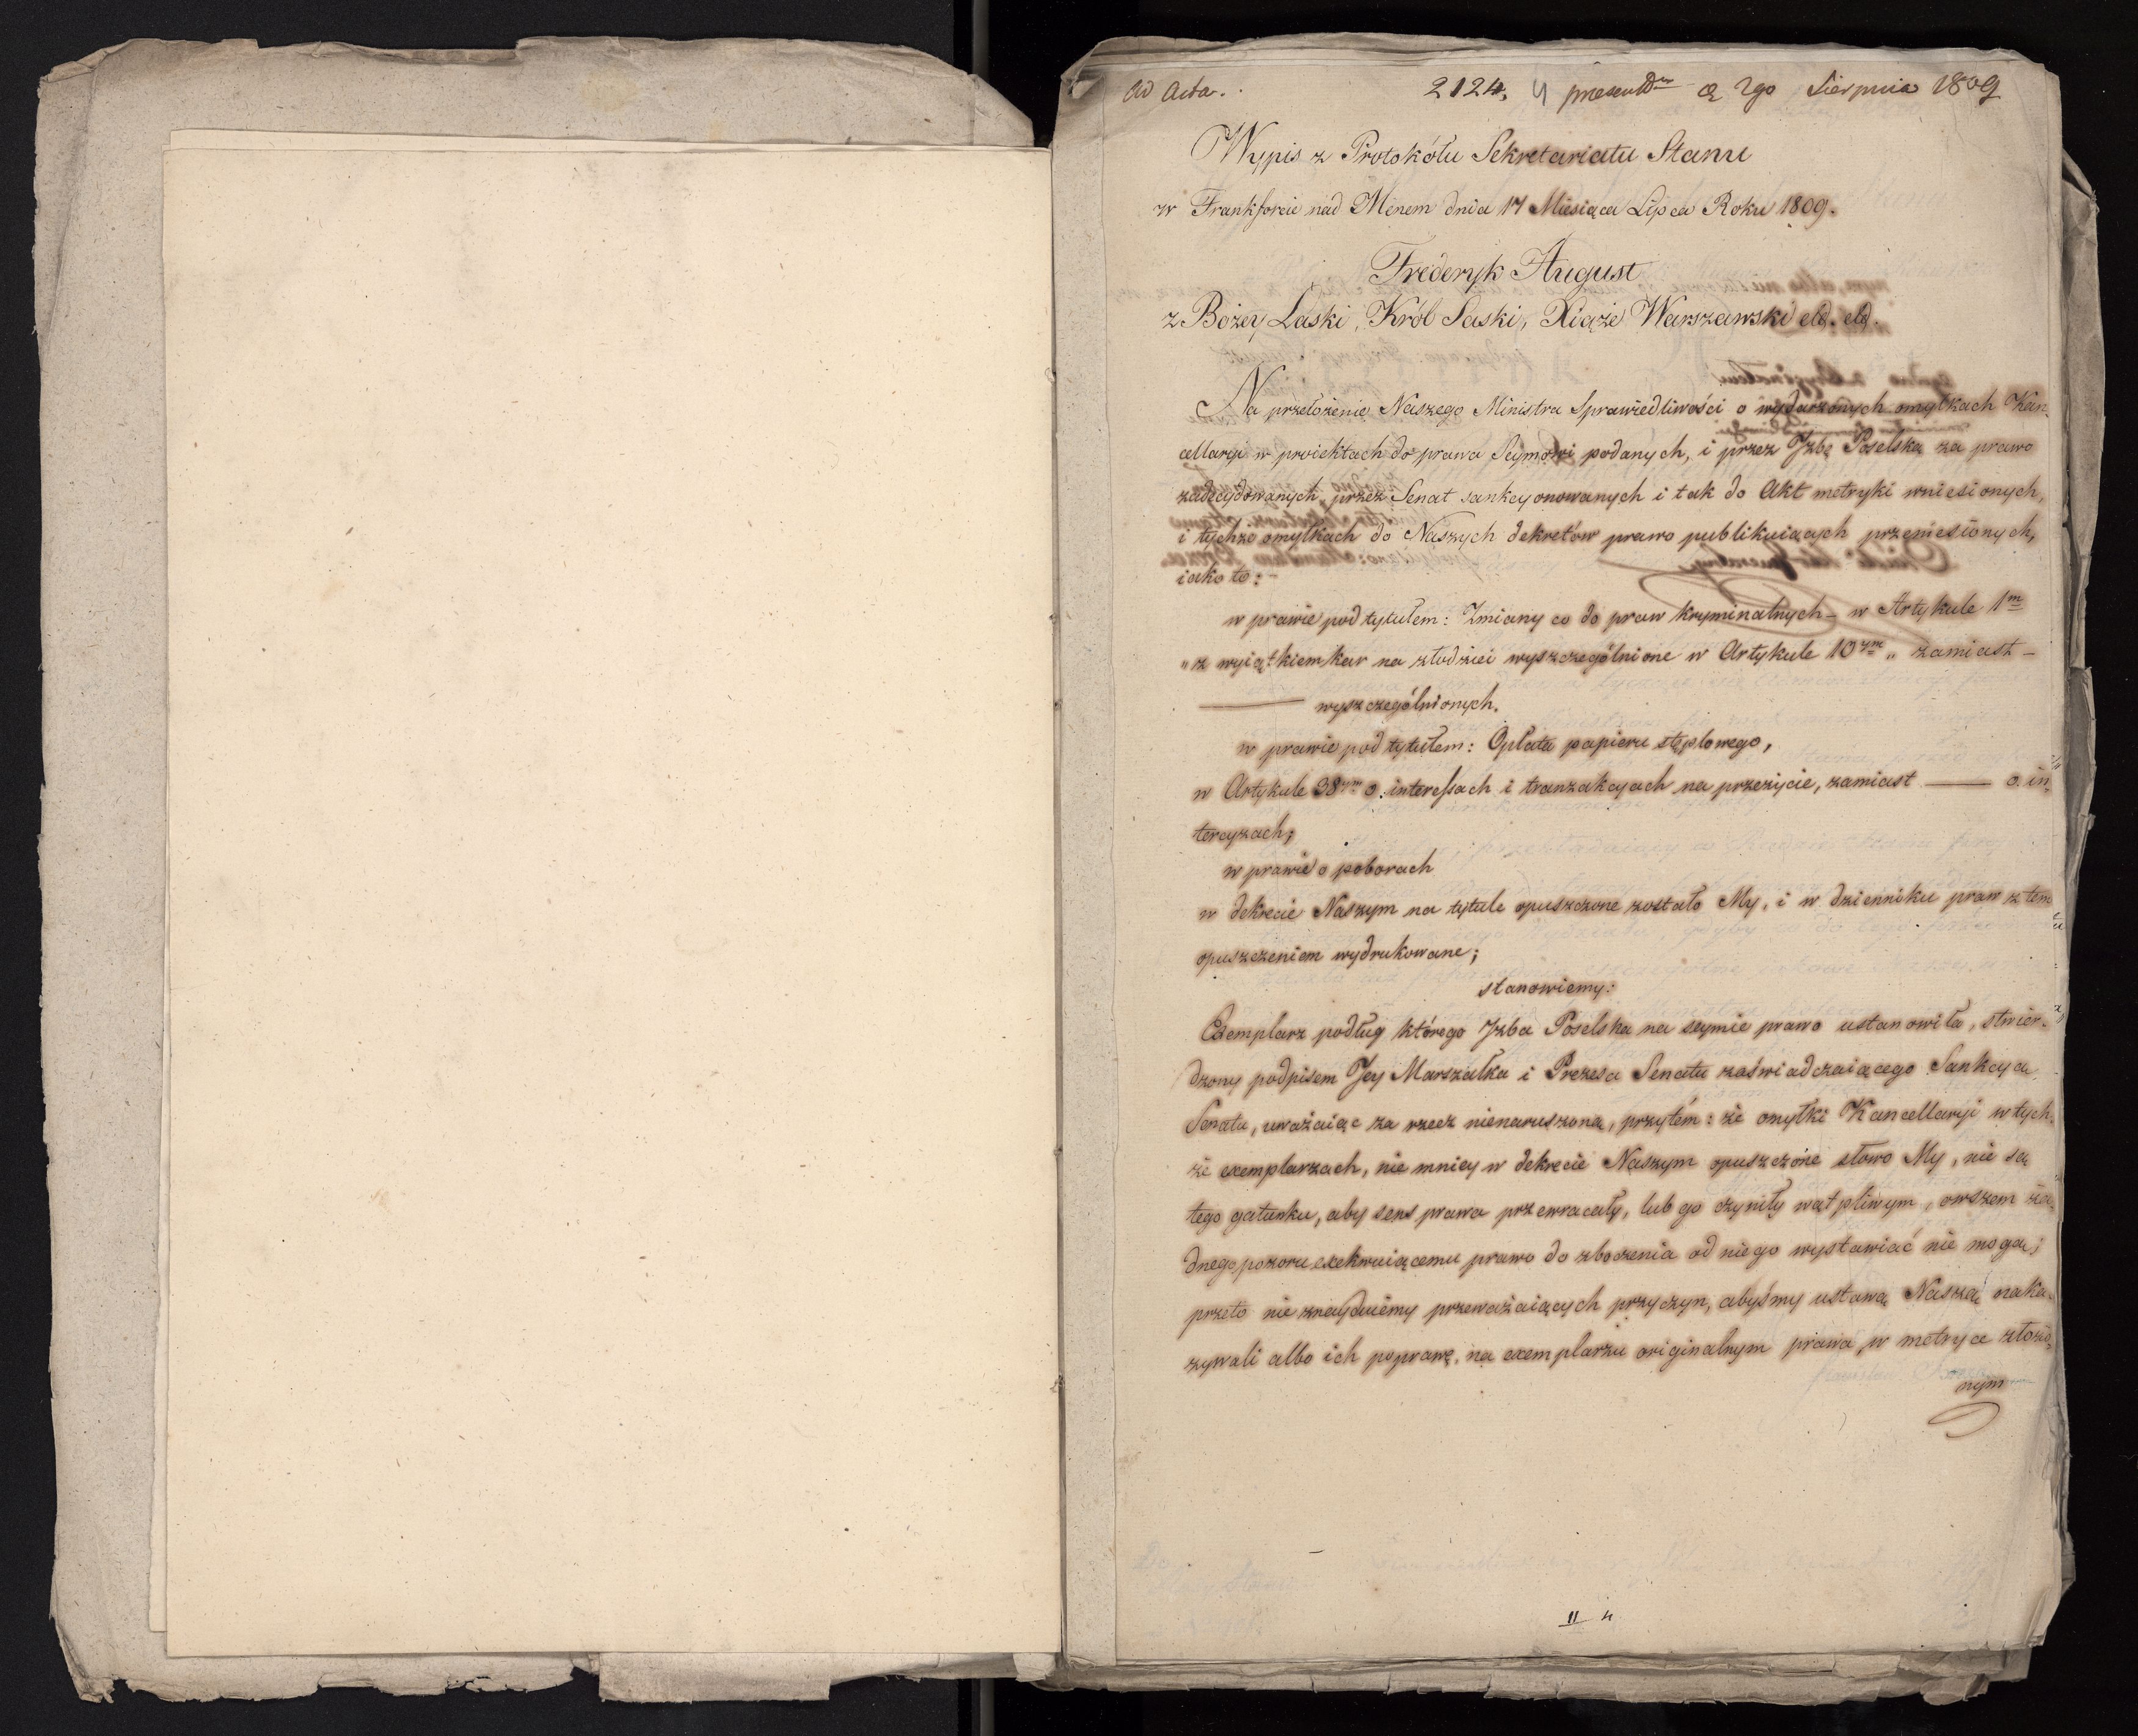 Ad Acta.
2124. 4 present d 2go Sierpnia 1809
Wypis z Protokółu Sekretariatu Stanu
w Frankforcie nad Menem dnia 17 Miesiąca Lipca Roku 1809.
Frederyk August
z Bożey Łaski, Król Saski, Xiąże Warszawski etd. etd.
Na przełożenie Naszego Ministra Sprawiedliwości o wydarzonych omyłkach Kan-
cellaryi w proiektach do prawa Seymowi podanych, i przez Jzbę Poselską za prawo
zadecydowanych, przez Senat sankcyonowanych i tak do Akt metryki wniesionych,
i tychże omyłkach do Naszych dekretów prawo publikuiących przeniesionych,
iako to: -
w prawie pod tytułem: Zmiany co do praw kryminalnych - w Artykule 1m
„z wyiątkiem kar na złodziei wyszczególnione w Artykule 10ym „ zamiast -
—— wyszczególnionych.
w prawie pod tytułem: Opłata papieru stęplowego,
w Artykule 38ym o interessach i tranzakcyach na przeżycie, zamiast —— o in-
tercyzach;
w prawie o poborach
w dekrecie Naszym na tytule opuszczone zostało My, i w dzienniku praw z tem
opuszczeniem wydrukowane;
stanowiemy:
Exemplarz podług którego Jzba Poselska na seymie prawo ustanowiła, stwier-
dzony podpisem Jey Marszałka i Prezesa Senatu zaświadczaiącego Sankcyą
Senatu, uważaiąc za rzecz nienaruszoną, przytém: że omyłki Kancellaryi w tych-
że exemplarzach, nie mniey w dekrecie Naszym opuszczone słowo My, nie są
tego gatunku, aby sens prawa przewracały, lub go czyniły wątpliwym, owszem ża-
dnego pozoru exekwuiącemu prawo do zboczenia od niego wystawiać nie mogą;
przeto nie znayduiemy przeważaiących przyczyn, abyśmy ustawą Naszą naka-
zywali albo ich poprawę, na exemplarzu originalnym prawa w metryce złożo-
nym
II 4